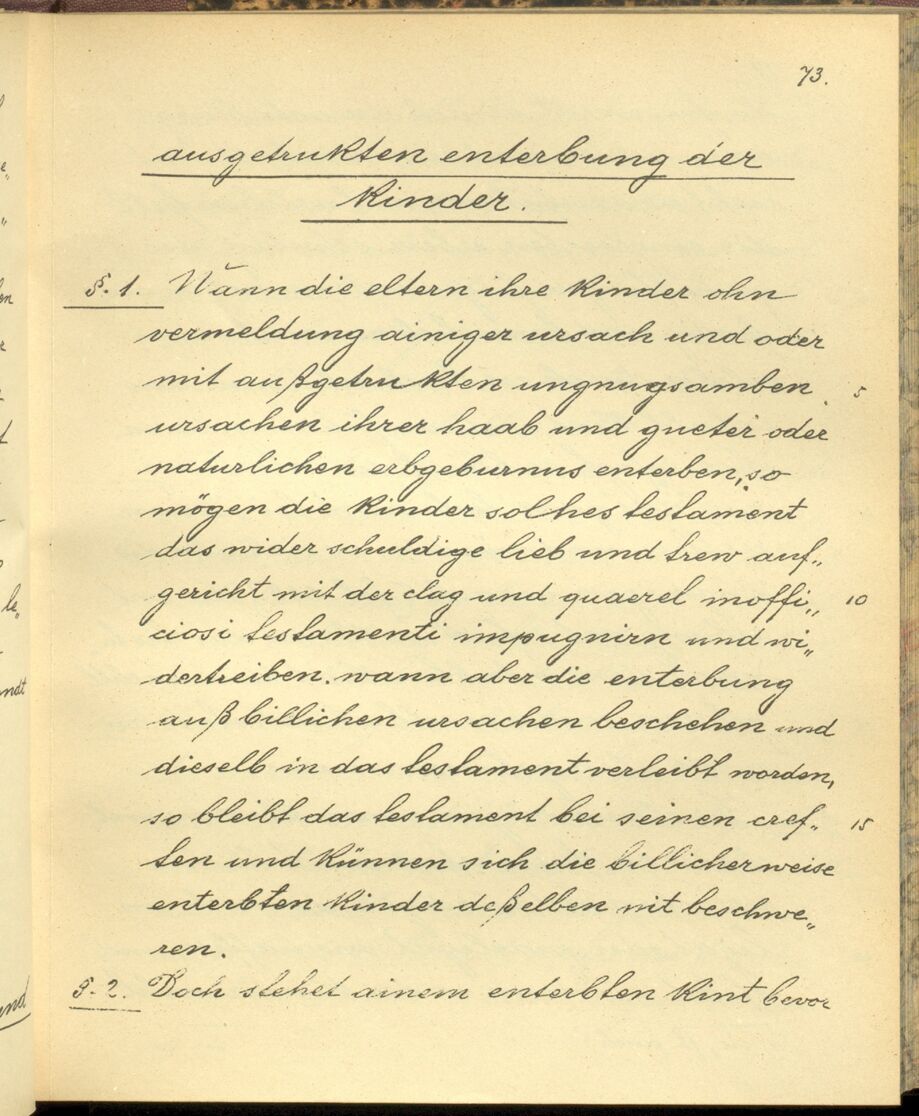 73.
ausgetrukten enterbung der
kinder.
§. 1. Wann die eltern ihre kinder ohn
vermeldung ainiger ursach und oder
mit außgetrukten ungnugsamben 5
ursachen ihrer haab und gueter oder
naturlichen erbgeburnus enterben, so
mögen die kinder solhes testament
das wider schuldige lieb und trew auf„
gericht mit der clag und quaerel inoffi„ 10
ciosi testamenti impugnirn und wi„
dertreiben. wann aber die enterbung
auß billichen ursachen beschehen und
dieselb in das testament verleibt worden,
so bleibt das testament bei seinen cref„ 15
ten und künnen sich die billicherweise
enterbten kinder deßelben nit beschwe„
ren.
§. 2. Doch stehet ainem enterbten kint bevor